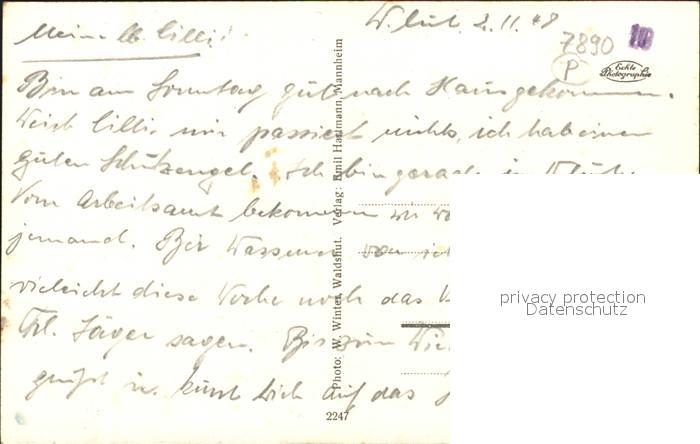 W.hut. 2.11.48
Meine lb. Cilli!
7890
10
P
Echte Photographie
Bin am Sonntag gut nach Haus gekommen.
Weisst Cilli, mir passiert nichts, ich hab einen
guten Schutzengel. Ich bin gerade in
Vom Arbeitsamt bekommen wir
jemand. Bei
vielleicht diese Woche noch das
Frl. Jäger sagen. Bis zum
grüßt u. küsst Dich auf das
Photo: W. Winter, Waldshut. Verlag: Emil Hartmann, Mannheim
2247
privacy protection
Datenschutz